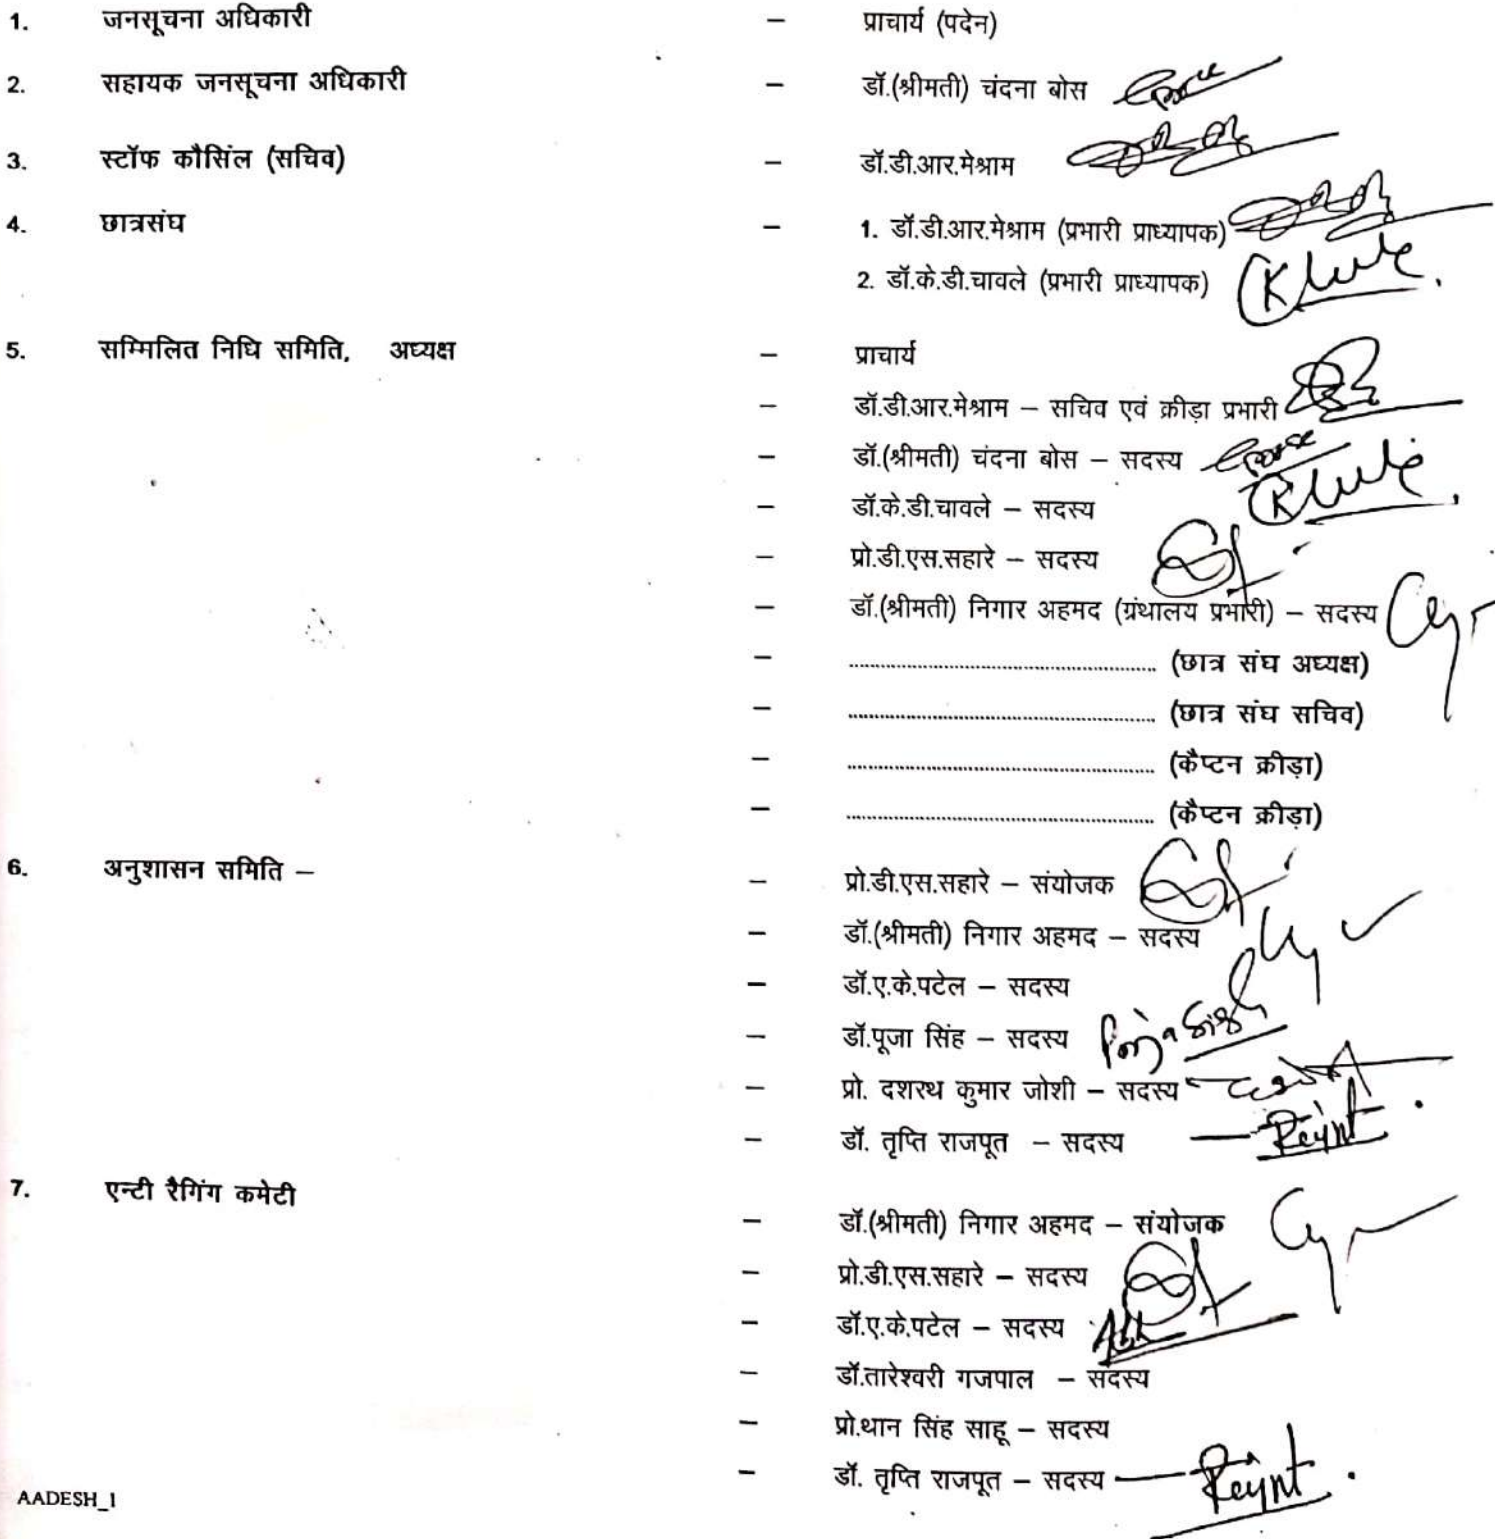 1. जनसूचना अधिकारी – प्राचार्य (पदेन)
2. सहायक जनसूचना अधिकारी – डॉ.(श्रीमती) चंदना बोस
3. स्टॉफ कौसिंल (सचिव) – डॉ.डी.आर.मेश्राम
4. छात्रसंघ – 1. डॉ.डी.आर.मेश्राम (प्रभारी प्राध्यापक)
2. डॉ.के.डी.चावले (प्रभारी प्राध्यापक)
5. सम्मिलित निधि समिति, अध्यक्ष – प्राचार्य
– डॉ.डी.आर.मेश्राम – सचिव एवं क्रीड़ा प्रभारी
– डॉ.(श्रीमती) चंदना बोस – सदस्य
– डॉ.के.डी.चावले – सदस्य
– प्रो.डी.एस.सहारे – सदस्य
– डॉ.(श्रीमती) निगार अहमद (ग्रंथालय प्रभारी) – सदस्य
– .................................................... (छात्र संघ अध्यक्ष)
– .................................................... (छात्र संघ सचिव)
– .................................................... (कैप्टन क्रीड़ा)
– .................................................... (कैप्टन क्रीड़ा)
6. अनुशासन समिति – – प्रो.डी.एस.सहारे – संयोजक
– डॉ.(श्रीमती) निगार अहमद – सदस्य
– डॉ.ए.के.पटेल – सदस्य
– डॉ.पूजा सिंह – सदस्य
– प्रो. दशरथ कुमार जोशी – सदस्य
– डॉ. तृप्ति राजपूत – सदस्य
7. एन्टी रैगिंग कमेटी
– डॉ.(श्रीमती) निगार अहमद – संयोजक
– प्रो.डी.एस.सहारे – सदस्य
– डॉ.ए.के.पटेल – सदस्य
– डॉ.तारेश्वरी गजपाल – सदस्य
– प्रो.थान सिंह साहू – सदस्य
– डॉ. तृप्ति राजपूत – सदस्य
AADESH_1